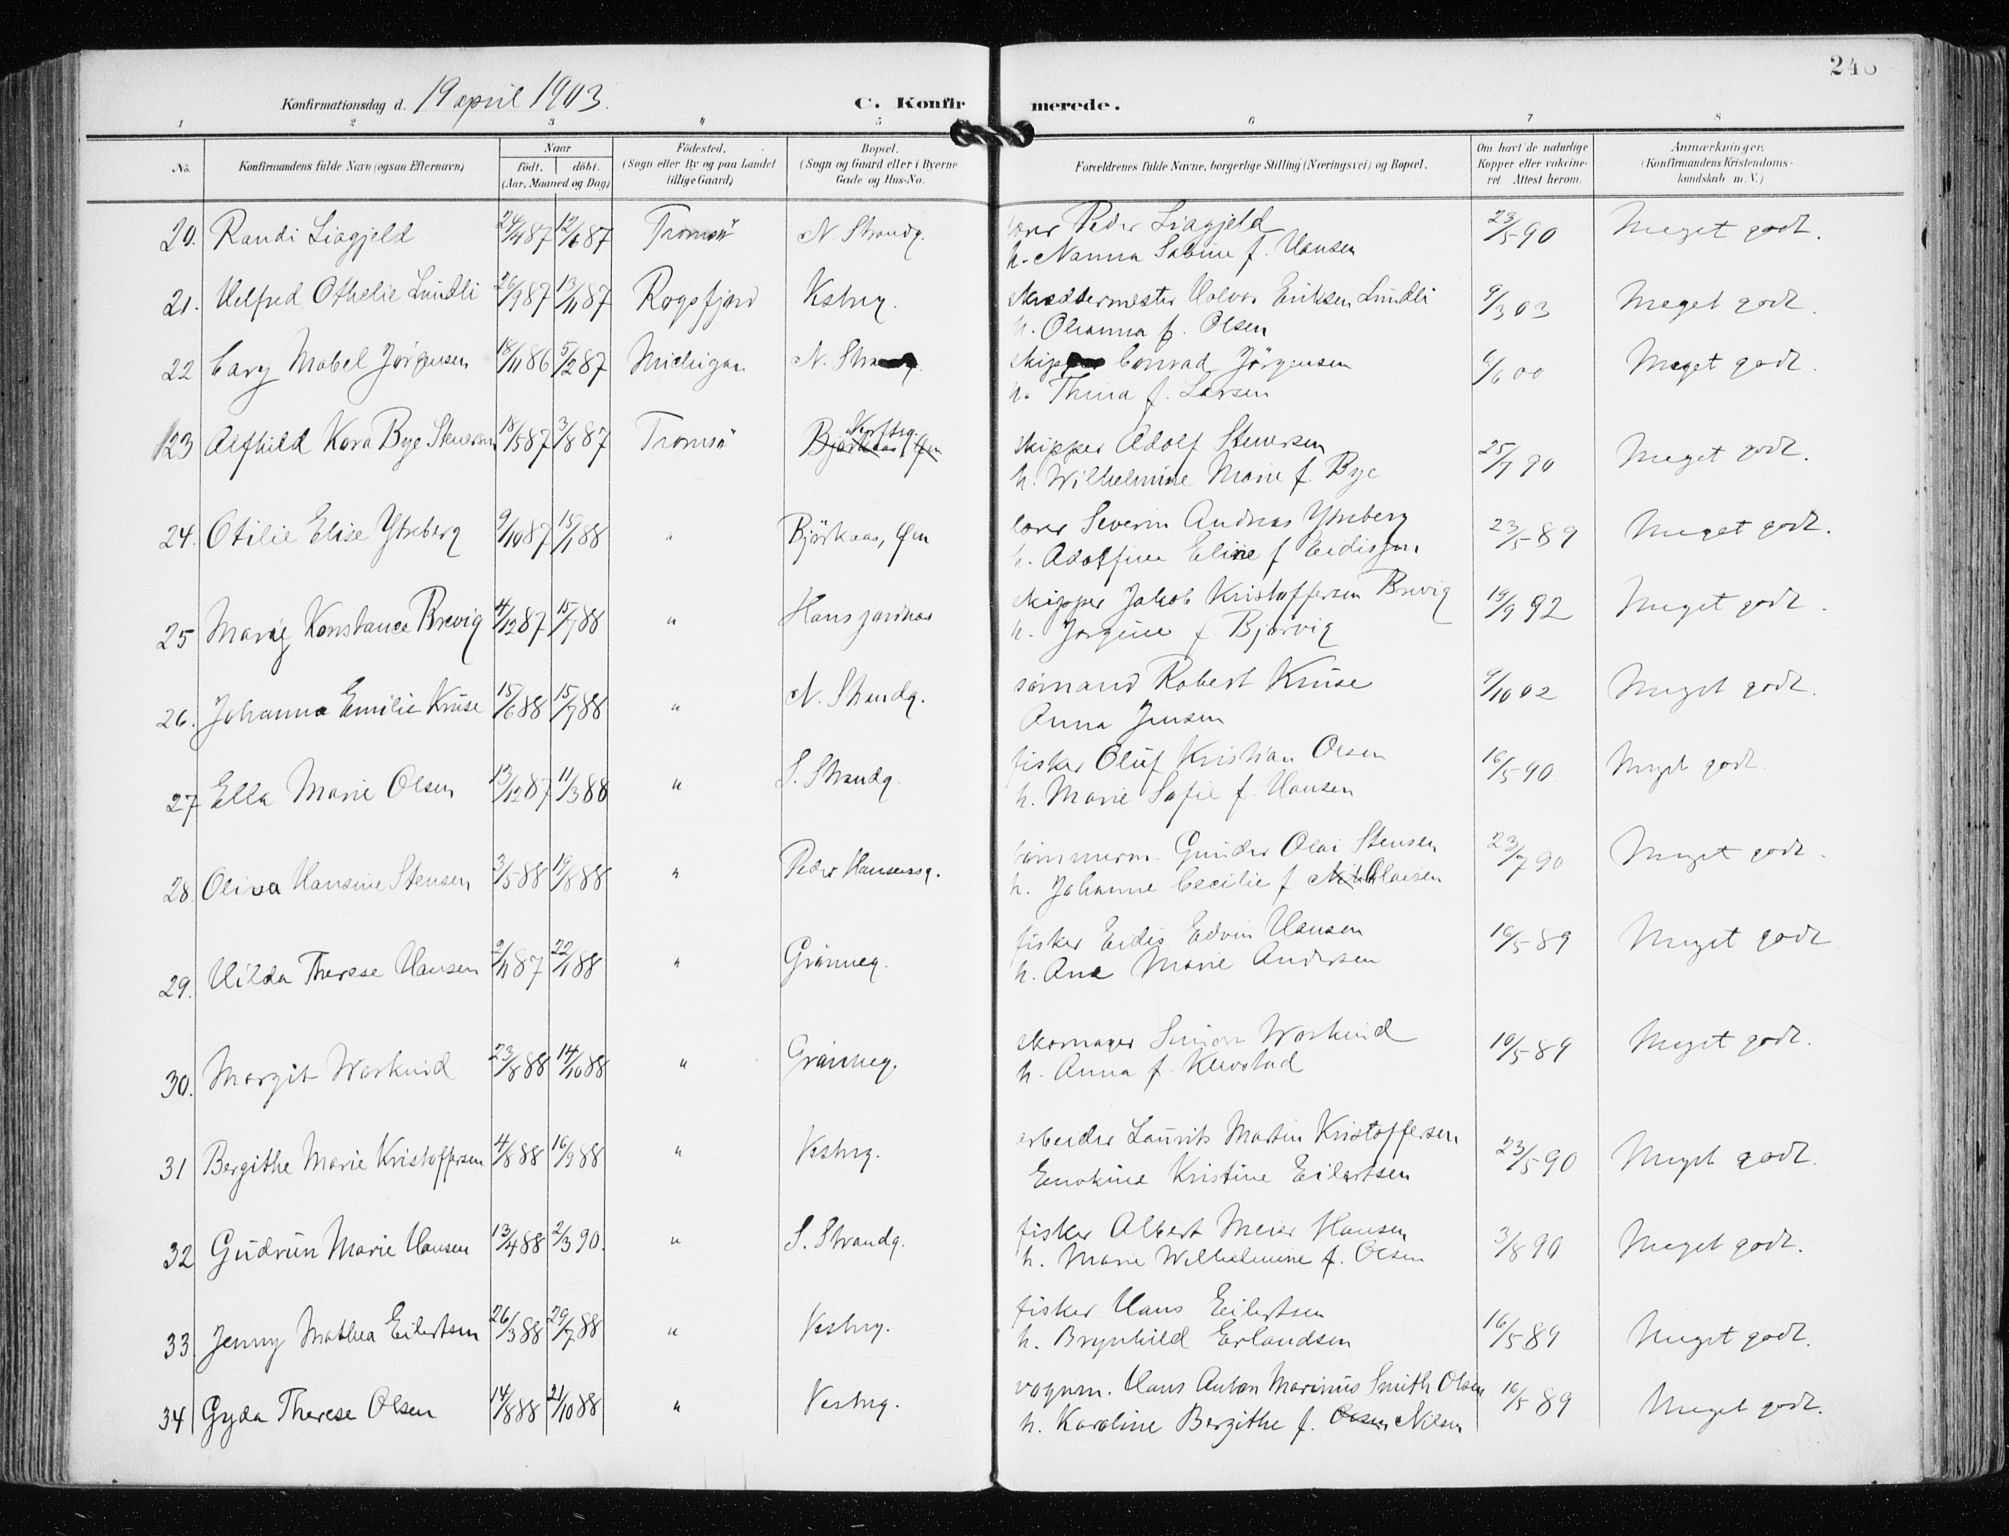 248
Konfirmationsdag d. 19 april 1903.
C. Konfirmerede.
1 2 3 4 5 6 7 8
No. Konfirmandens fulde Navn (ogsaa Efternavn) Naar Født. døbt. (Aar, Maaned og Dag) Fødested. (Sogn eller By og paa Landet tillige Gaard) Bopæl. (Sogn og Gaard eller i Byerne Gade og Hus-No. Forældrenes fulde Navne, borgerlige Stilling (Næringsvei) og Bopæl. Om havt de naturlige Kopper eller vakcineret Attest herom. Anmærkninger. (Konfirmandens Kristendomskundskab m. V.)
20. Randi Liagjeld 24/4 87 12/6 87 Tromsö N. Strandg. Peder Liagjeld 23/5 90 Meget godt.
h. Nanna Sabine f. Hansen
21. Helfred Othelie Lundli 26/9 87 13/11 87 Rogsfjord Vestreg. Halvor Eriksen Lundli 9/3 03 Meget godt.
h. Olianna f. Olsen
22 Cary Mabel Jørgensen 18/11 86 5/2 87 Michigan N. Strandg. skipper Conrad Jørgensen 6/6 00 Meget godt.
h. Thina f. Larsen
23 Alfhild Kara Bye Stenersen 18/5 87 3/8 87 Tromsö Bjørkaas, Øen skipper Adolf Stenersen 25/7 90 Meget godt.
h. Wilhelmine Marie f. Bye
24. Otilie Elise Ytreberg 9/10 87 15/1 88 " Bjørkaas, Øen Severin Andreas Ytreberg 23/5 89 Meget godt.
h. Adolfine Eline f. Eidissen
25 Marie Konstance Brevig 4/12 87 15/7 88 " Hansjordnes skipper Jakob Kristoffersen Brevig 19/9 92 Meget godt.
h. Jørgine f. Bjørvig
26. Johanna Emilie Kruse 15/6 88 15/7 88 " N. Strandg. sømand Robert Kruse 9/10 02 Meget godt.
Anna Jensen
27 Ella Marie Olsen 13/12 87 11/3 88 " S. Strandg. fisker Oluf Kristian Olsen 16/5 90 Meget godt.
h. Marie Sofie f. Hansen
28. Oliva Hansine Stensen 3/5 88 19/8 88 " Peder Hansensg. tømmerm. Gunder Olai Stensen 23/7 90 Meget godt.
h. Johanne Cecilie f. Olaisen
29. Hilda Therese Hansen 2/11 87 22/1 88 " Grønneg. fisker Eidis Edvin Hansen 16/5 89 Meget godt
h. Ane Marie Andersen
30. Margit Warkind 23/8 88 14/10 88 " Grønneg. skomager Simon Warkind 10/5 89 Meget godt.
h. Anna f. Klevstad
31 Bergithe Marie Kristoffersen 4/8 88 16/9 88 " Vestreg. arbeider Laurits Martin Kristoffersen 23/5 90 Meget godt.
Enokine Kristine Eilertsen
32 Gudrun Marie Hansen 13/4 88 2/3 90. " S. Strandg. fisker Albert Meier Hansen 3/8 90 Meget godt.
h. Marie Wilhelmine f. Olsen
33 Jenny Mathea Eilertsen 26/3 88 29/7 88 " Vestreg. fisker Hans Eilertsen 16/5 89 Meget godt.
h. Brynhild Erlandsen
34 Gyda Therese Olsen 14/8 88 21/10 88 " Vestreg. vognm. Hans Anton Marinus Smith Olsen 16/5 89 Meget godt.
h. Karoline Bergithe f. Olsen Nilsen